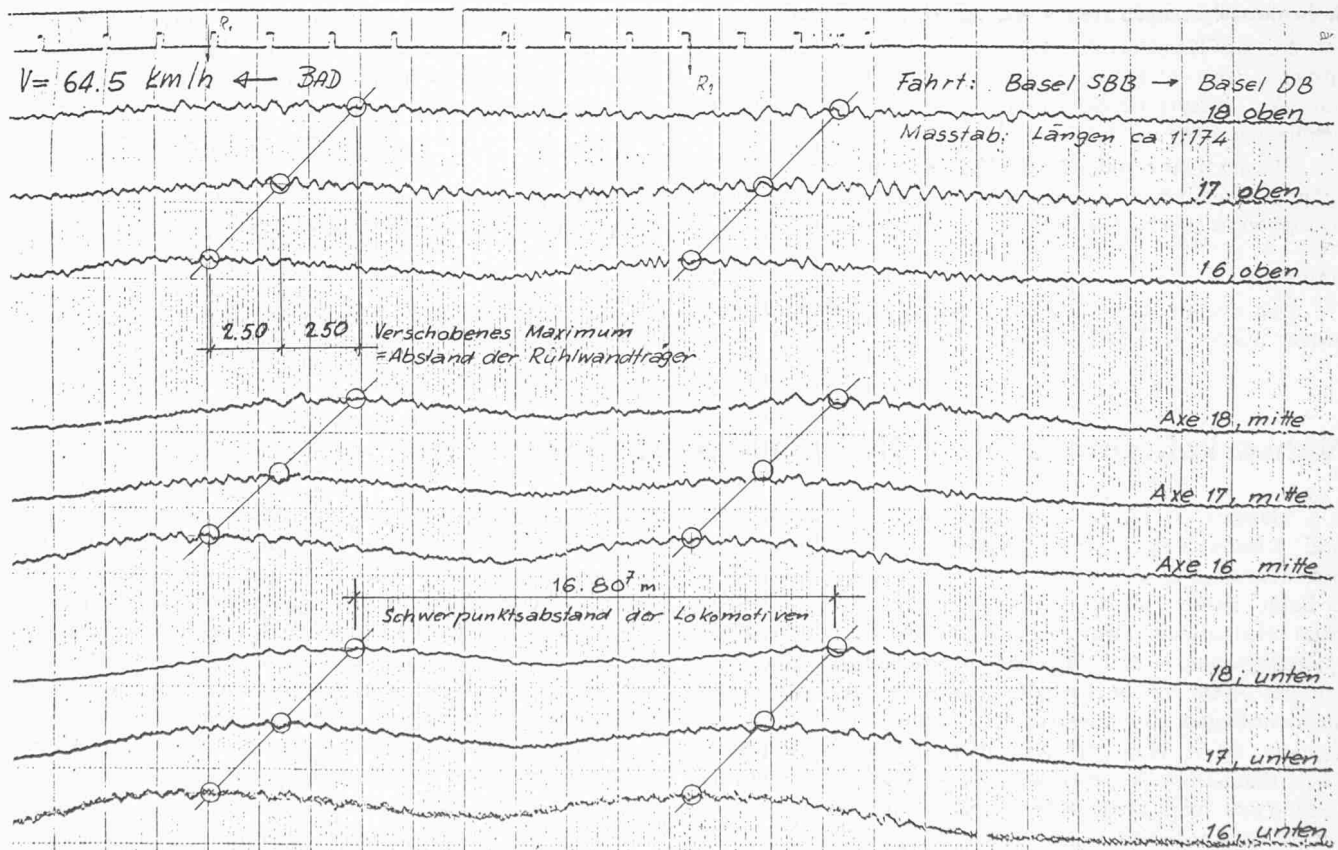 R₁
V= 64.5 km/h ← BAD
R₁
Fahrt: Basel SBB → Basel DB
18 oben
Masstab: Längen ca 1:174
17. oben
16, oben
2.50 2.50 Verschobenes Maximum
=Abstand der Rühlwandträger
Axe 18, mitte
Axe 17, mitte
Axe 16 mitte
16.80⁷ m
Schwerpunktsabstand der Lokomotiven
18, unten
17, unten
16, unten